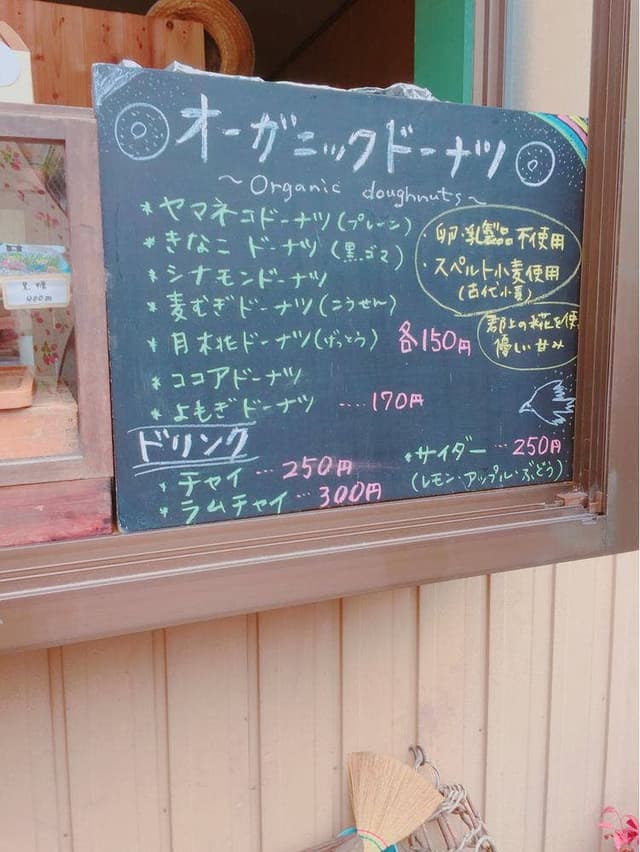 オーガニックドーナツ
～Organic doughnuts～
*ヤマネコドーナツ(プレーン)
*きなこ ドーナツ(黒ゴマ)
*シナモンドーナツ
*麦むぎドーナツ(こうせん)
*月桃ドーナツ(げっとう) 各150円
*ココアドーナツ
*よもぎドーナツ ....170円
・卵・乳製品不使用
・スペルト小麦使用
(古代小麦)
郡上の糀を使
優しい甘み
ドリンク
*チャイ...250円
*ラムチャイ...300円
*サイダー...250円
(レモン・アップル・ぶどう)
黒糖